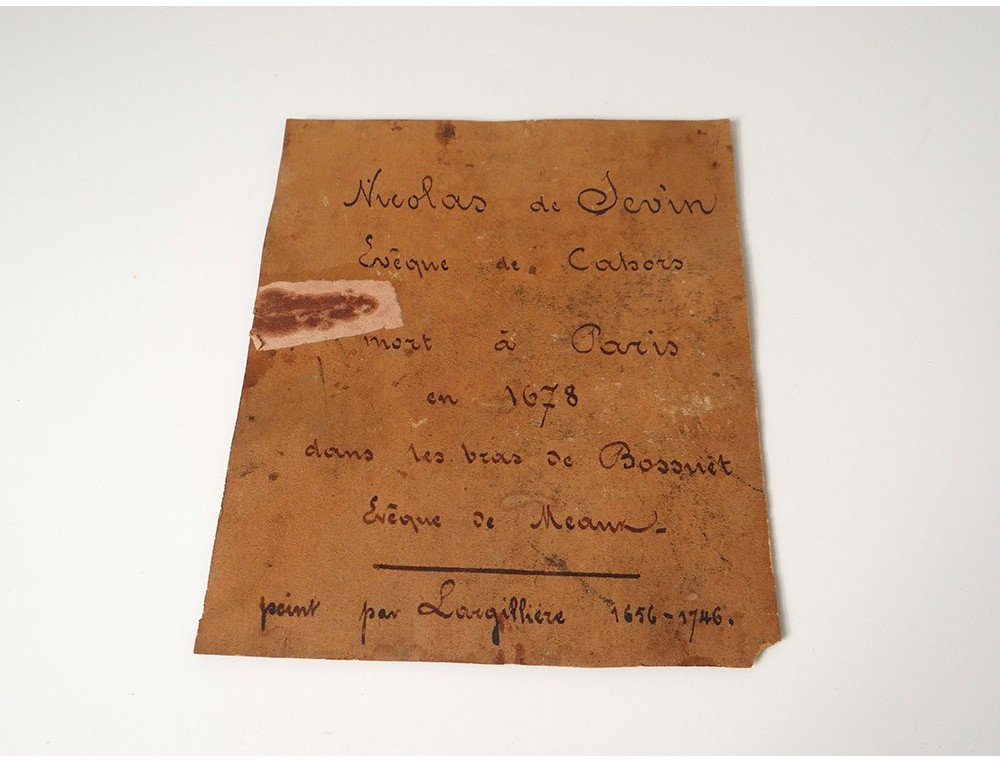 Nicolas de Sevin
Evêque de Cahors
mort à Paris
en 1678
dans les bras de Bossuet
Evêque de Meaux
peint par Largillière 1656-1746.